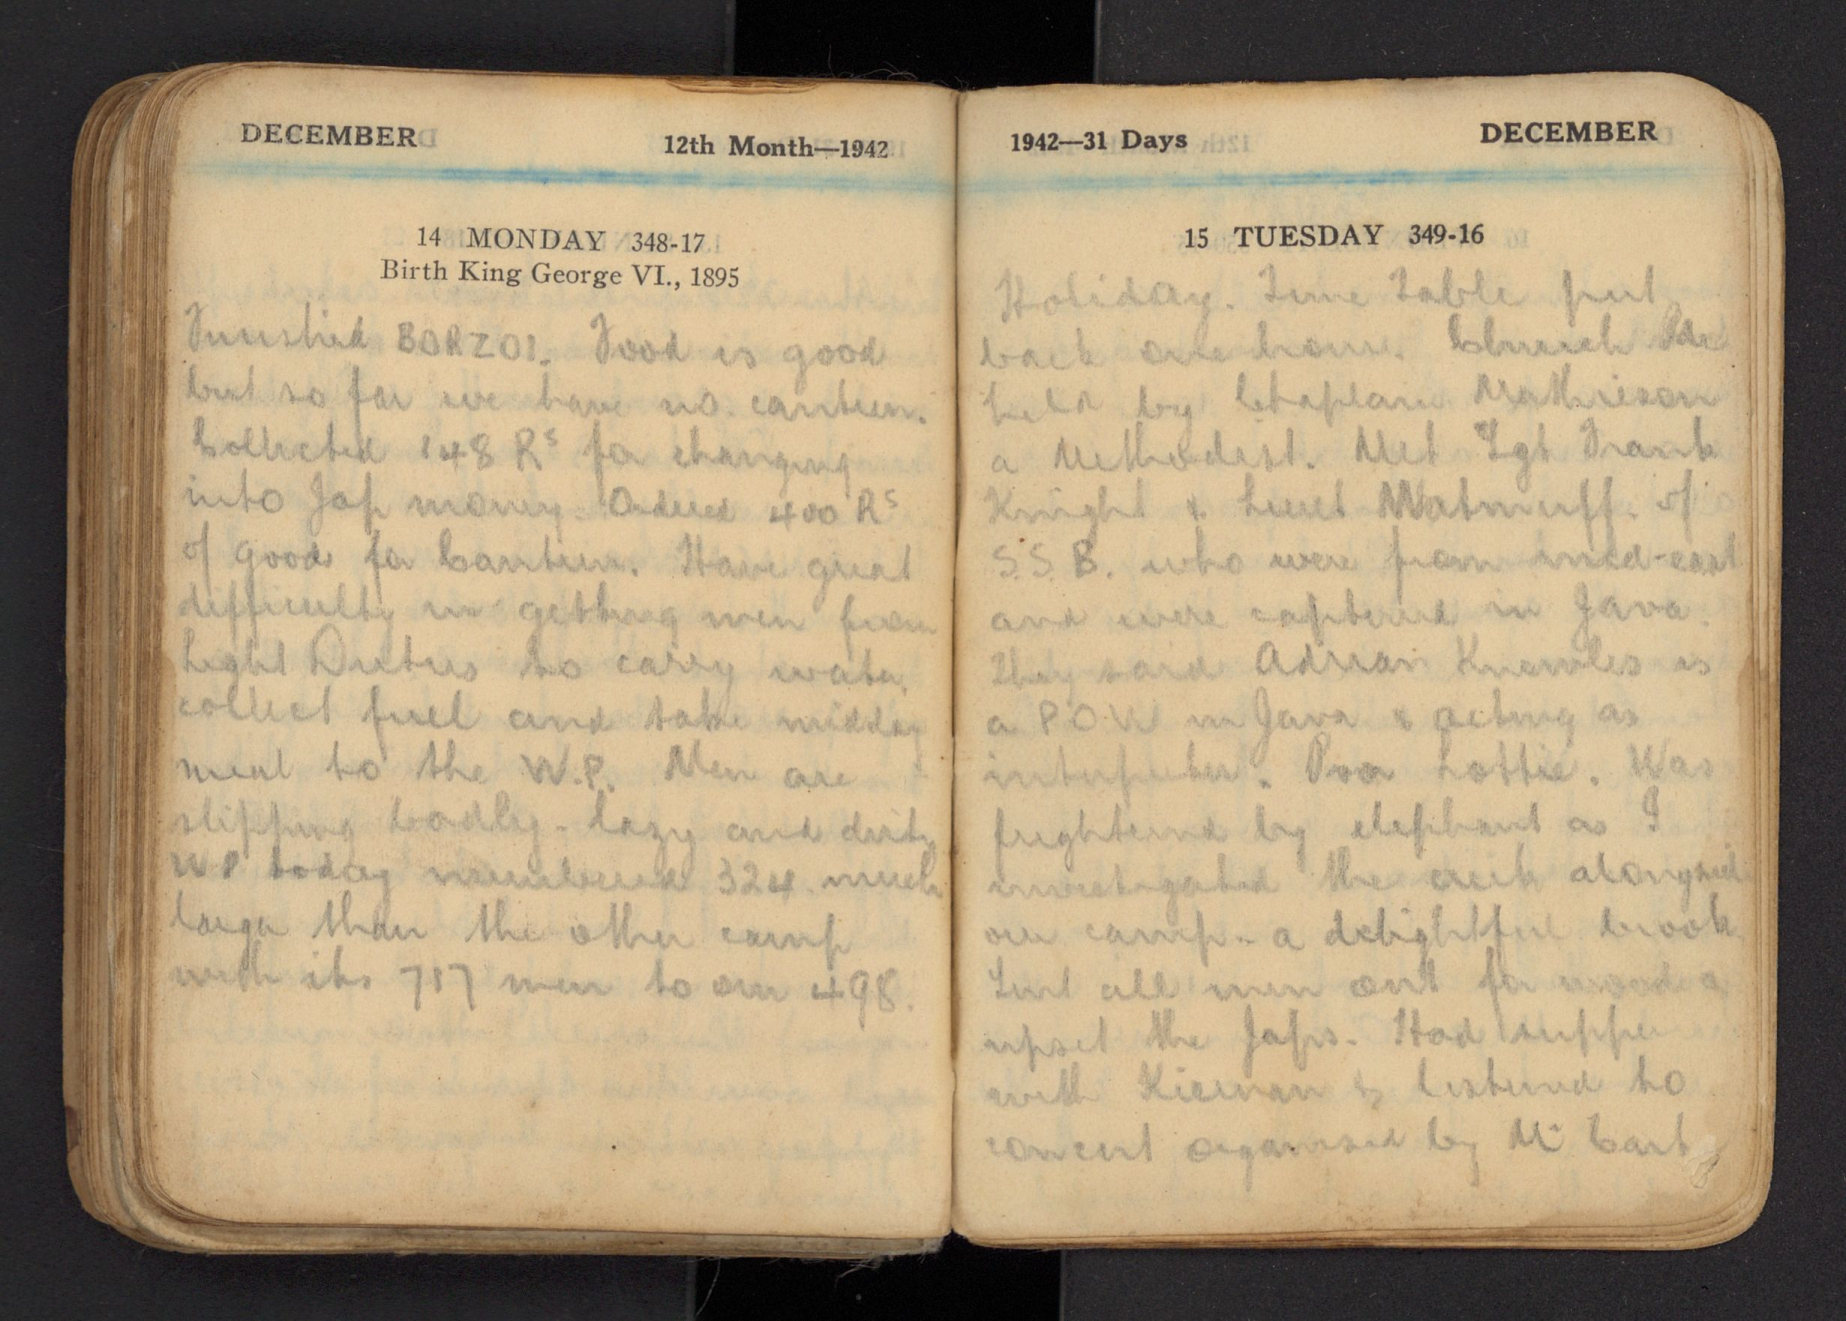 DECEMBER 12th Month—1942
14 MONDAY 348-17
Birth King George VI., 1895
Finished BORZOI. Food is good
but so far we have no canteen.
Collected 148 Rs for changing
into Jap money. Ordered 400 Rs
of goods for Canteen. Have great
difficulty in getting men from
Light Duties to carry water,
collect fuel and take midday
meal to the W.P. Men are
slipping badly - lazy and dirty
WP today numbered 324 much
larger than the other camp
with its 717 men to our 498.
1942—31 Days DECEMBER
15 TUESDAY 349-16
Holiday. Time table put
back one hour. Church Pde
held by Chaplain Mathieson
a Methodist. Met Sgt Frank
Knight & Lieut Watmuff. of
S.S.B. who were from mid-east
and were captured in Java.
They said Adrian Knowles is
a POW in Java & acting as
interpreter. Poor Lottie. Was
frightened by elephant as I
investigated the creek alongside
our camp - a delightful brook
Sent all men out for wood &
upset the Japs. Had supper
with Kiernan & listened to
concert organised by Mc Cart